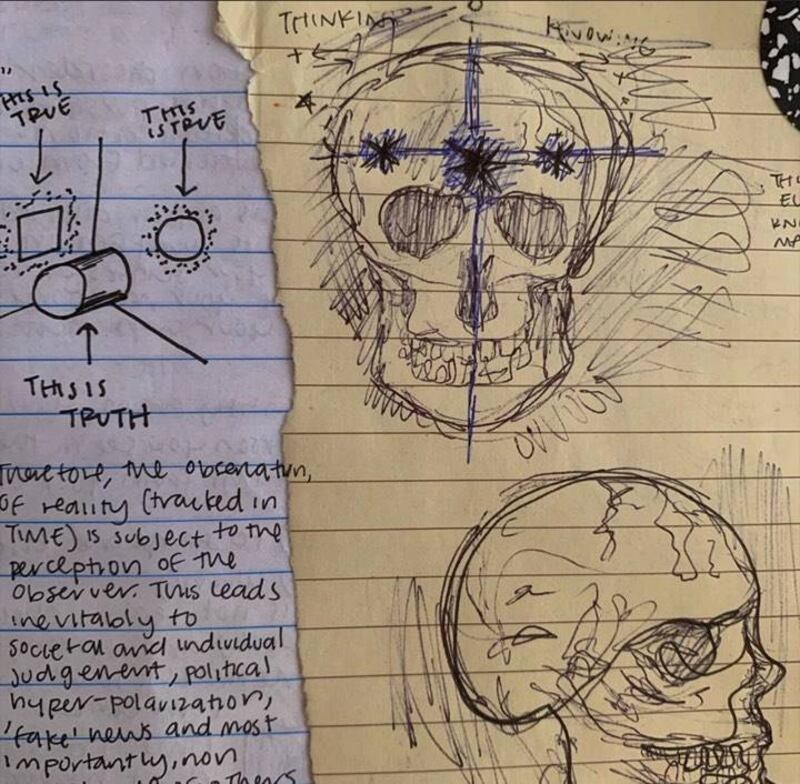 THIS IS
TRUE
THIS
IS TRUE
THIS IS
TRUTH
Therefore, the observation,
OF reality (tracked in
TIME) is subject to the
perception of the
observer. This leads
inevitably to
societal and individual
judgement, political
hyper-polarization,
'fake' news and most
importantly, non
THINKING
KNOWING